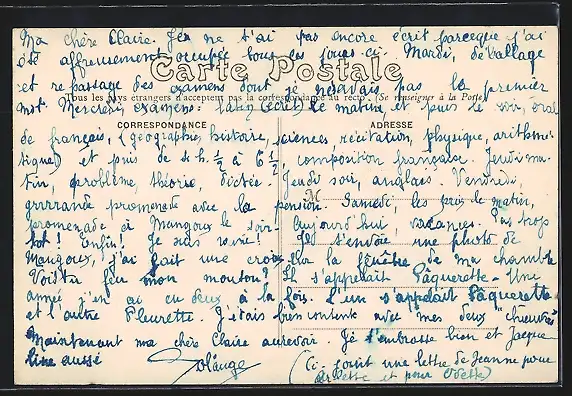 Ma chère Claire. Je ne t'ai pas encore écrit parceque j'ai
été affreusement occupée tous ces jours-ci. Mardi, déballage
Carte Postale
et repassage des examens dont je ne savais pas la premier
Tous les pays étrangers n'acceptent pas la correspondance au recto. (Se renseigner à la Poste)
mot. Mercredi, examens: latin (écrit) le matin et puis le soir, oral
CORRESPONDANCE ADRESSE
de français, (géographie, histoire, sciences, récitation, physique, arithmé-
tique) et puis de 4 h. ½ à 6 ½ composition française. Jeudi ma-
tin, problème, théorie, dictée. Jeudi soir, anglais. Vendredi,
M
grrrrande promenade avec la pension. Samedi, les prix le matin,
promenade à Mangoux le soir. Aujourd'hui, vacances. Pas trop
tot! Enfin! Je suis ravie! Je t'envoie une photo de
Mangoux, j'ai fait une croix sur la fenêtre de ma chambre
Vois-tu mon mouton? Il s'appelait Pâquerette. Une
année j'en ai eu deux à la fois. L'un s'appelait Pâquerette
et l'autre Fleurette. J'étais bien contente avec mes deux "cheuvres"
Maintenant ma chère Claire aurevoir. Je t'embrasse bien et Jacque
line aussi Solange (Ci-joint une lettre de Jeanne pour
et pour Odette)